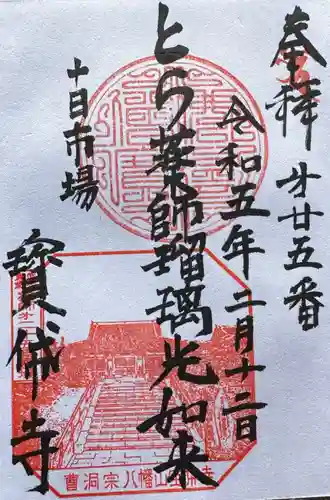 奉拝 才廿五番
令和五年二月十二日
とら薬師瑠璃光如来
十日市場
寳佛寺
曹洞宗八幡山